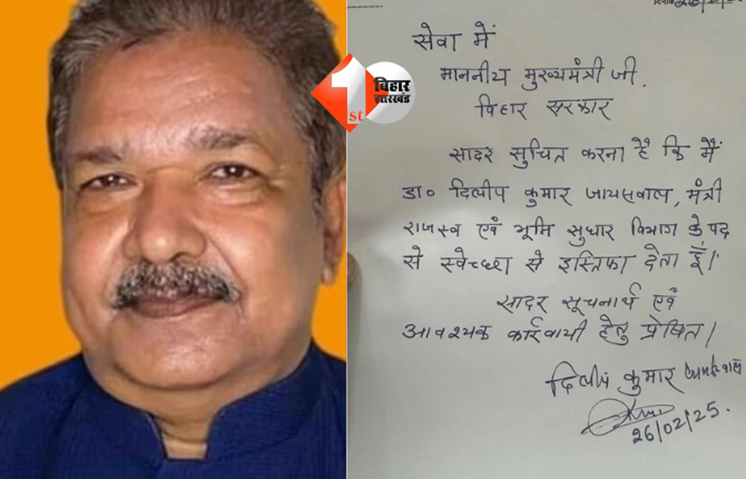 1st
बिहार
झारखंड
सेवा में
माननीय मुख्यमंत्री जी.
बिहार सरकार
सादर सुचित करना है कि मैं
डा० दिलीप कुमार जायसवाल, मंत्री
राजस्व एवं भूमि सुधार विभाग के पद
से स्वेच्छा से इस्तिफा देता हूँ।
सादर सूचनार्थ एवं
आवश्यक कार्रवायी हेतु प्रेषित।
दिलीप कुमार
26/02/25.